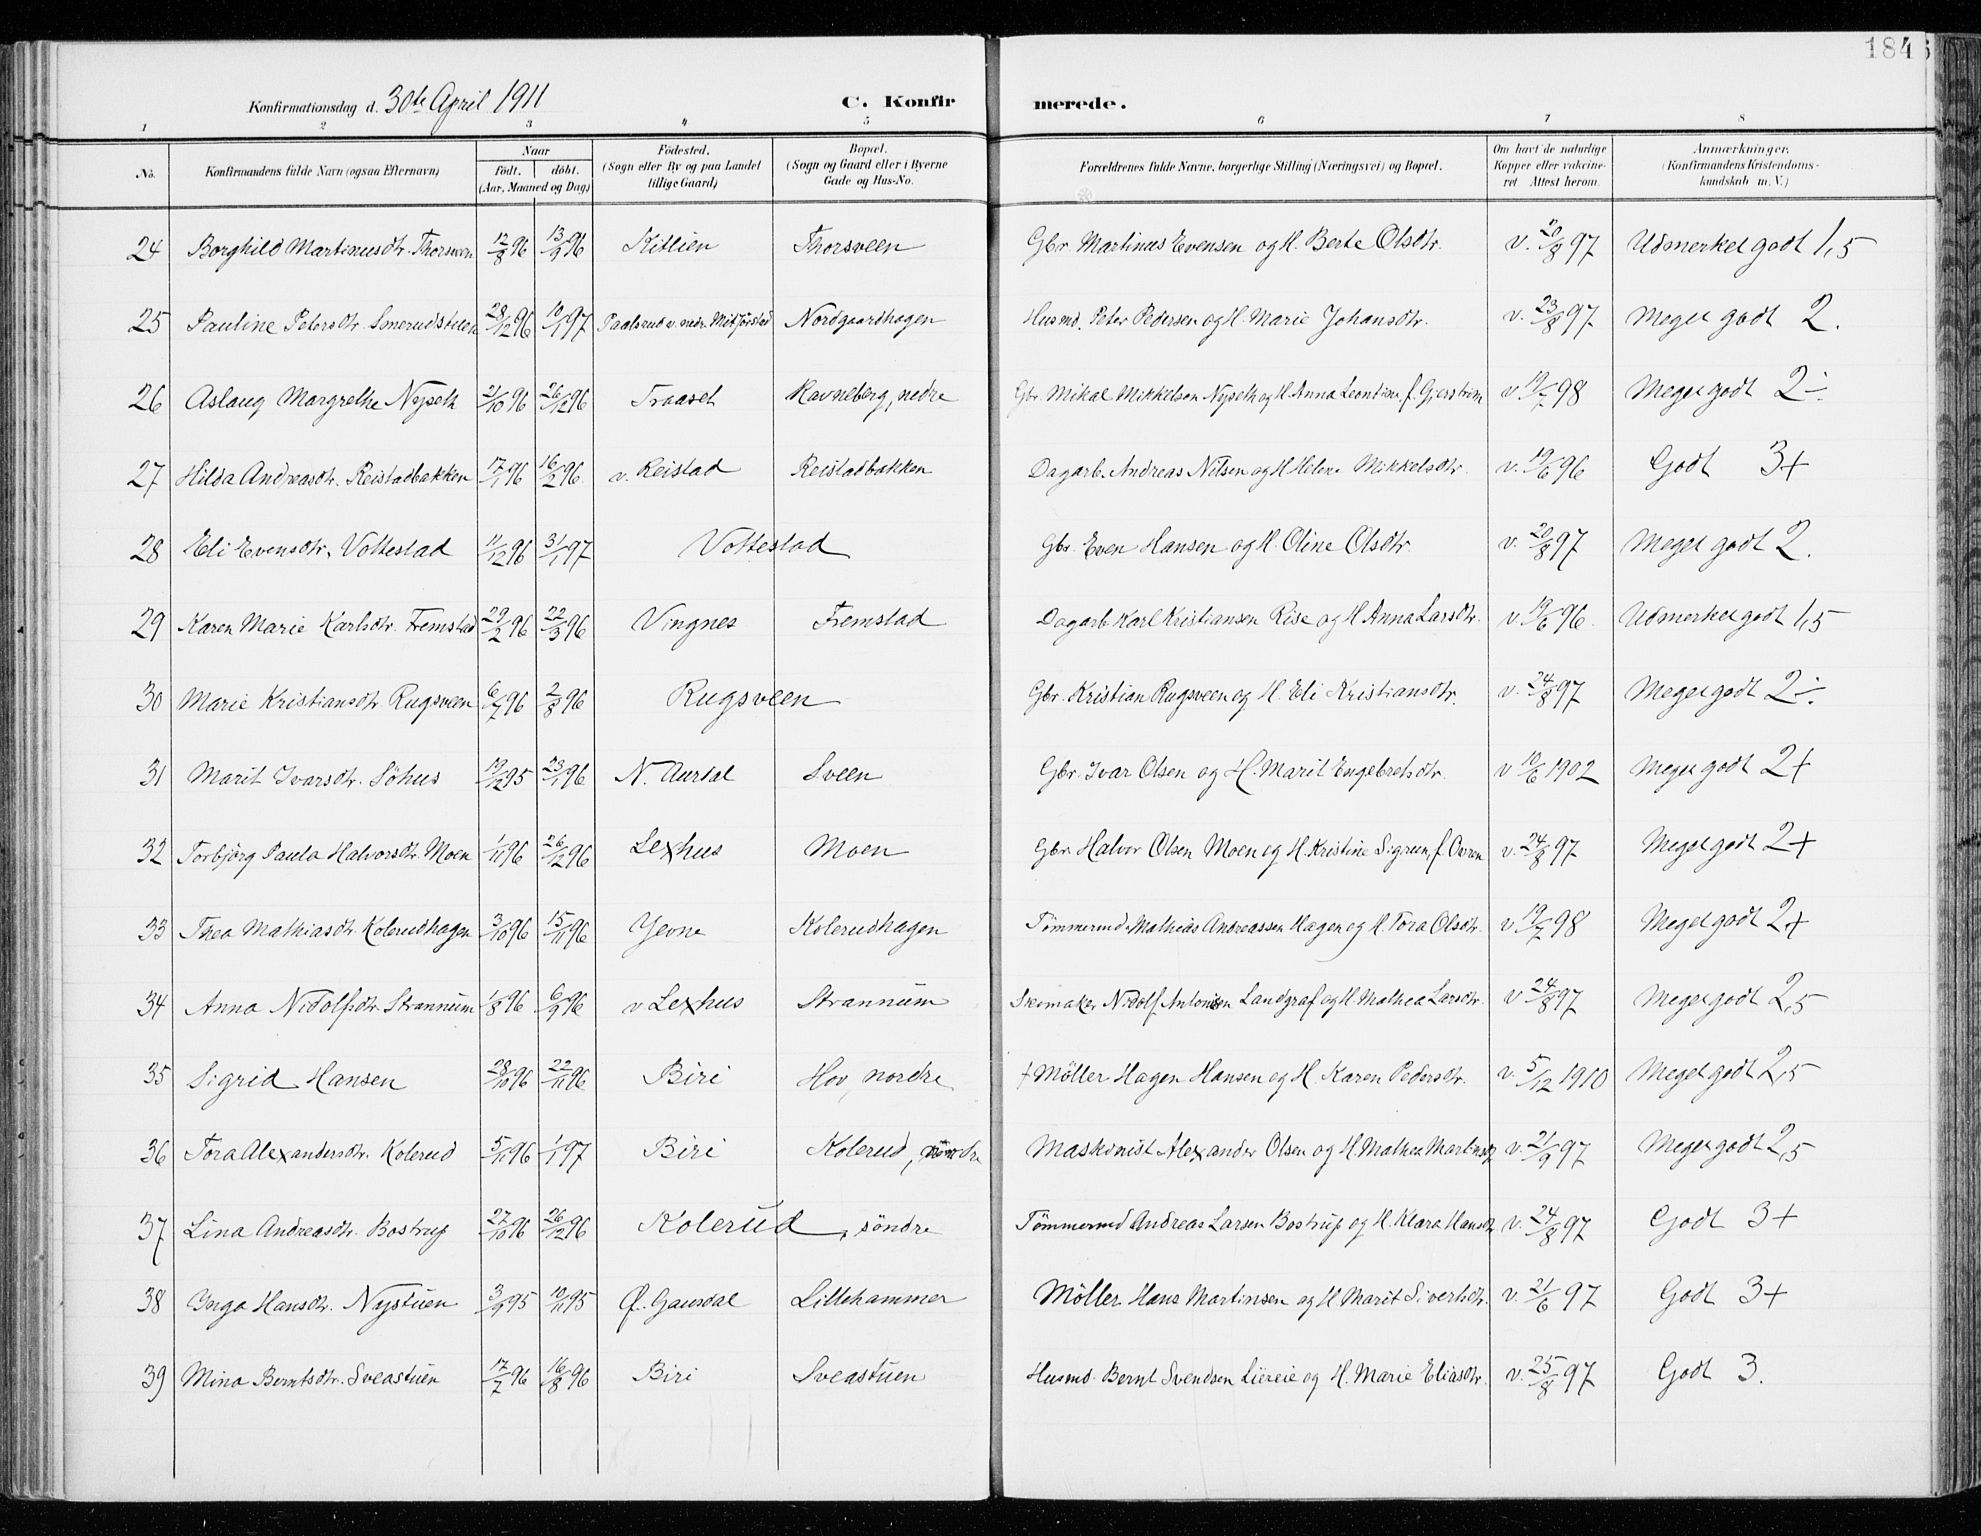 184
Konfirmationsdag d. 30te April 1911 C. Konfirmerede.
1 2 3 4 5 6 7 8
No. Konfirmandens fulde Navn (ogsaa Efternavn) Naar født. døbt. (Aar, Maaned og Dag) Fødested. (Sogn eller By og paa Landet tillige Gaard) Bopæl. (Sogn og Gaard eller i Byerne Gade og Hus-No. Forældrenes fulde Navne, borgerlige Stilling (Næringsvei) og Bopæl. Om havt de naturlige Kopper eller vakcineret Attest herom. Anmærkninger. (Konfirmandens Kristendomskundskab m. V.)
24 Borghild Martinusdtr. Thorsveen 12/8 96 13/9 96 Kitlien Thorsveen Gbr. Martinus Evensen og H. Berte Olsdtr. v. 20/8 97 Udmerket godt 1,5
25 Pauline Petersdtr. Smerudstuen 28/12 96 10/1 97 Paalsrud v. nedr. Mikjørstad Nordgaardhagen Husmd. Peter Pedersen og H. Marie Johansdtr. v. 23/8 97 Meget godt 2.
26 Aslaug Margrethe Nyseth 2/10 96 26/12 96 Traaset Ravneberg, nedre Gbr. Mikal Mikkelsen Nyseth og H. Anna Leontine f. Gjerstrøm v. 19/7 98 Meget godt 2÷
27 Hilda Andreasdtr. Reistadbakken 17/1 96 16/2 96. v. Reistad Reistadbakken Dagarb. Andreas Nilsen og H Helene Mikkelsdtr. v. 19/6 96 Godt 3+
28 Eli Evensdtr. Vottestad 11/12 96 31/1 97 Vottestad Gbr. Even Hansen og H. Oline Olsdtr. v. 20/8 97 Meget godt 2.
29 Karen Marie Karlsdtr. Fremstad 29/2 96 22/3 96 Vingnes Fremstad Dagarb. Karl Kristiansen Rise og H Anna Larsdtr. v. 19/6 96. Udmerket godt 1,5
30 Marie Kristiansdtr Rugsveen 6/7 96 2/8 96 Rugsveen Gbr. Kristian Rugsveen og H. Eli Kristiansdtr. v. 24/8 97 Meget godt 2÷
31 Marit Ivarsdtr. Söhus 19/12 95 23/1 96 N. Aurdal Sveen Gbr. Ivar Olsen og H. Marit Engebretsdtr. v 10/6 1902 Meget godt 2+
32 Torbjörg Paula Halvorsdtr. Moen 1/11 96 26/12 96 Lexhus Moen Gbr. Halvor Olsen Moen og H. Kristine Sigrun, f. Owren v. 24/8 97 Meget godt 2+
33 Thea Mathiasdtr Kolerudhagen 3/10 96 15/11 96 Jevne Kolerudhagen Tömmermd. Mathias Andreassen Hagen og H. Tora Olsdtr. v. 19/7 98 Meget godt 2+
34 Anna Nidolfsdtr. Strannum 1/8 96 6/9 96 v Lexhus Strannum Skomaker Nidolf Antonisen Landgraf og H. Mathea Larsdtr. v 24/8 97 Meget godt 2,5
35 Sigrid Hansen 28/10 96 22/11 96 Biri Hov, nordre † Möller Hagen Hansen og H. Karen Pedersdtr. v. 5/12 1910 Meget godt 2,5
36 Tora Alexandersdtr. Kolerud 5/11 96 1/1 97 Biri Kolerud, Maskinist Alexander Olsen og H. Mathea Martinsdtr v. 21/9 97 Meget godt 2,5
37 Lina Andreasdtr. Bostrup 27/10 96 26/12 96 Kolerud, söndre Tömmermd Andreas Larsen Bostrup og H. Klara Hansdtr v. 24/8 97 Godt 3+
38 Inga Hansdtr. Nystuen 3/9 95 10/11 95 Ø. Gausdal Lillehammer Möller Hans Martinsen og H Marit Sivertsdtr. v. 21/6 97 Godt 3+
39 Mina Berntsdtr. Sveastuen 17/7 96 16/8 96 Biri Sveastuen Husmd. Bernt Svendsen Liereie og H. Marie Eliasdtr. v. 25/8 97 Godt 3.